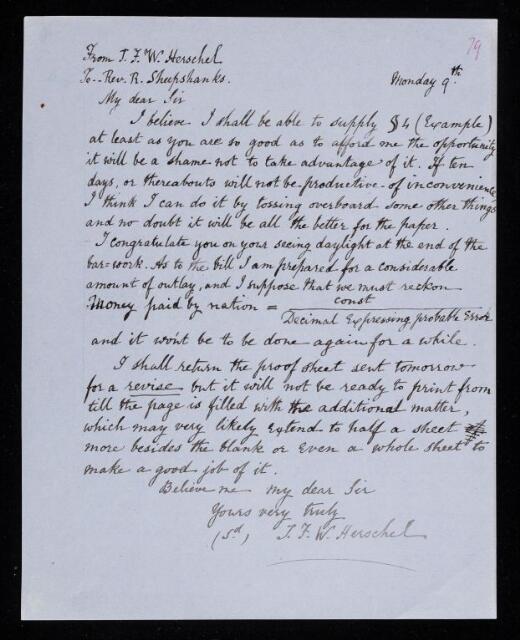 79
From J. F. W. Herschel
To - Rev. R. Sheepshanks.
Monday 9th
My dear Sir
I believe I shall be able to supply § 4 (Example)
at least as you are so good as to afford me the opportunity
it will be a shame not to take advantage of it. If ten
days, or thereabouts will not be productive of inconvenience
I think I can do it by tossing overboard some other things
and no doubt it will be all the better for the paper.
I congratulate you on your seeing daylight at the end of the
bar=work. As to the bill I am prepared for a considerable
amount of outlay, and I suppose that we must reckon
Money paid by nation = const
Decimal Expressing probable Error
and it wont be to be done again for a while.
I shall return the proof sheet sent tomorrow
for a revise but it will not be ready to print from
till the page is filled with the additional matter,
which may very likely extend to half a sheet
more besides the blank or even a whole sheet to
make a good job of it.
Believe me my dear Sir
Yours very truly
(Sd) J. F. W. Herschel